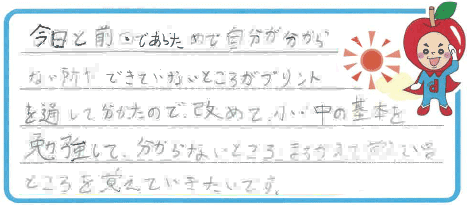 今日と前回であらためて自分が分から
ない所や できていないところがプリント
を通して分かたので、改めて、小、中の基本を
勉強して、分からないところ まちがえて覚えている
ところを覚えていきたいです。
d